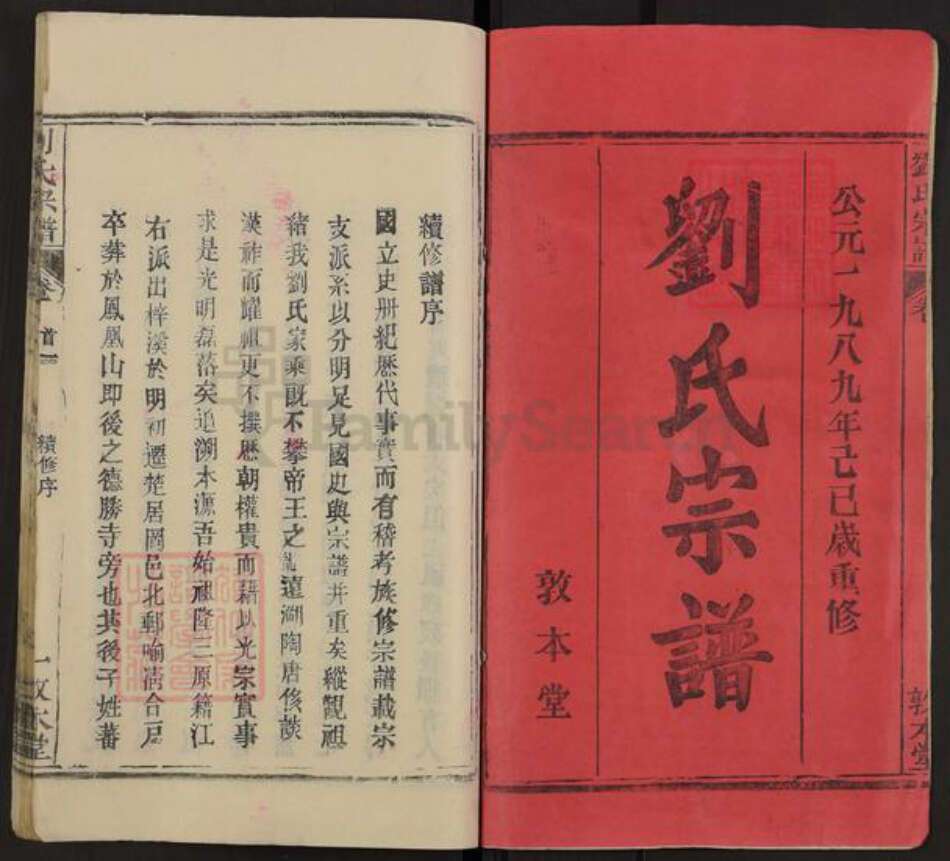 公元一九八九年己巳歲重修
劉氏宗譜
敦本堂
劉氏宗譜
敦本堂
續修譜序
國立史册紀歷代事實而有稽考族修宗譜載宗
支派系以分明足見國史與宗譜并重矣縱觀祖
緒我劉氏家乘既不攀帝王之 遠溯陶唐侈談
漢祚而耀祖更不撰歷朝權貴而藉以光宗實事
求是光明磊落矣追溯本源吾始祖隆三原籍江
右派出梓溪於明初遷楚居岡邑北鄉 合 
卒葬於鳳凰山即後之德勝寺旁也其後子姓蕃
劉氏宗譜
卷首一
續修序
一敦本堂
FamilySearch